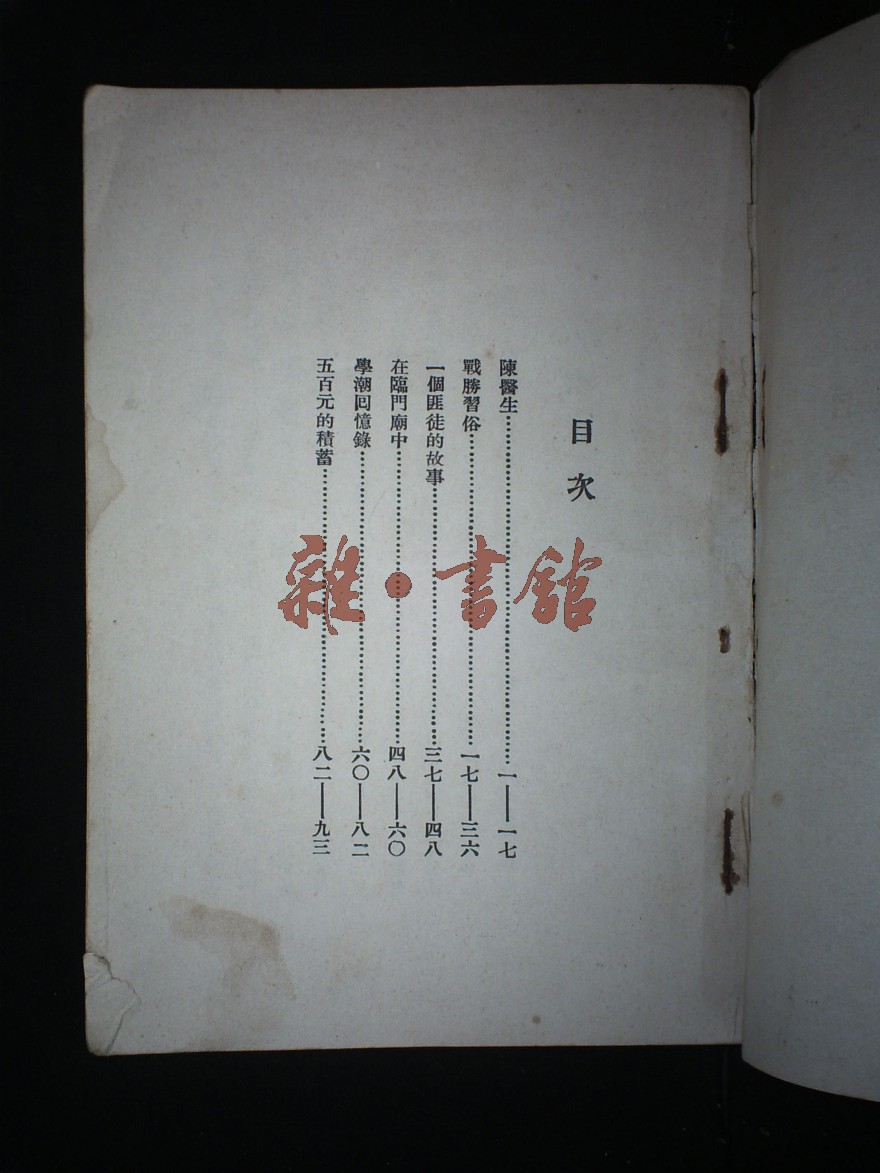 目次
陳醫生……………………一——一七
戰勝習俗……………………一七——三六
一個匪徒的故事……………………三七——四八
在臨門廟中……………………四八——六〇
學潮回憶錄……………………六〇——八二
五百元的積蓄……………………八二——九三
雜·書館